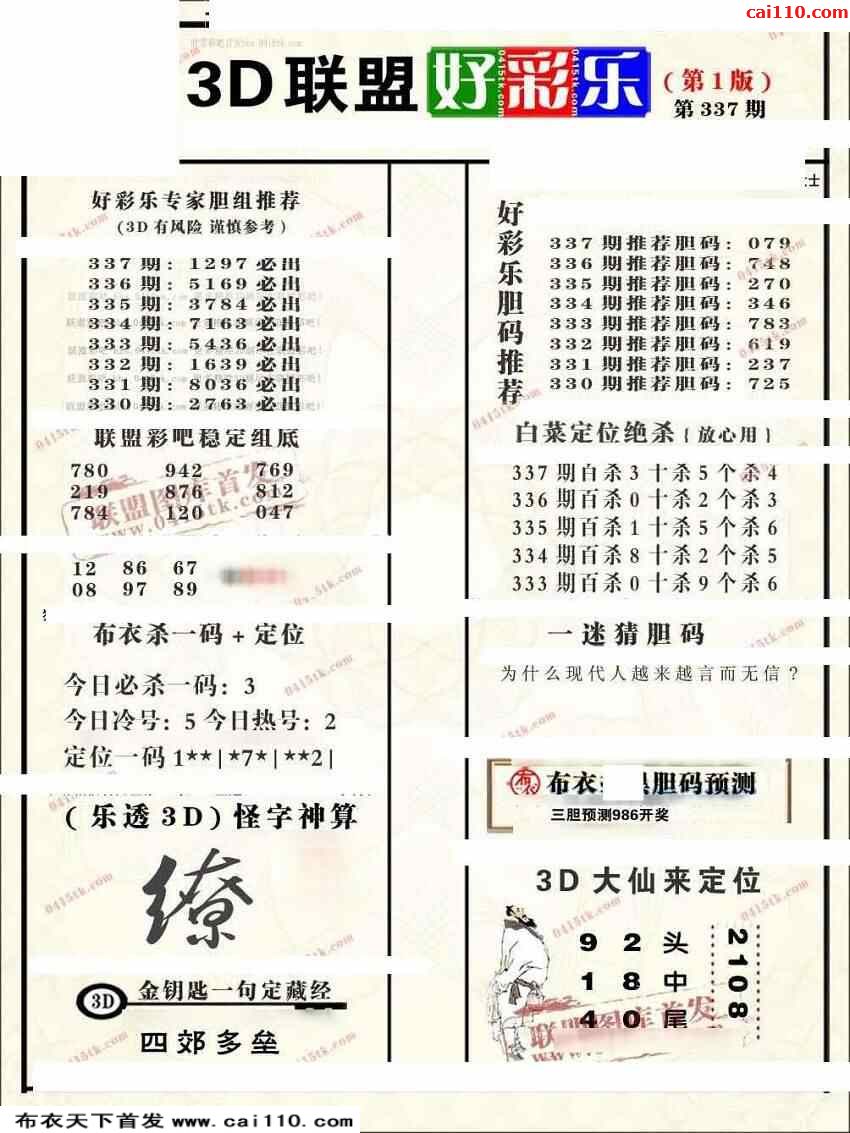 cai110.com
3D联盟好彩乐
(第1版)
第337期
好彩乐专家胆组推荐
(3D有风险 谨慎参考)
337期：1297必出
336期：5169必出
335期：3784必出
334期：7163必出
333期：5436必出
332期：1639必出
331期：8036必出
330期：2763必出
联盟彩吧稳定组底
780 942 769
219 876 812
784 120 047
联盟图库首发
www.0415tk.com
12 86 67
08 97 89
布衣杀一码+定位
今日必杀一码：3
今日冷号：5 今日热号：2
定位一码 1**|*7*|**2|
(乐透3D)怪字神算
缭
3D 金钥匙一句定藏经
四郊多垒
士
好彩乐胆码推荐
337期推荐胆码：079
336期推荐胆码：748
335期推荐胆码：270
334期推荐胆码：346
333期推荐胆码：783
332期推荐胆码：619
331期推荐胆码：237
330期推荐胆码：725
白菜定位绝杀{放心用}
337期白杀3十杀5个杀4
336期百杀0十杀2个杀3
335期百杀1十杀5个杀6
334期百杀8十杀2个杀5
333期百杀0十杀9个杀6
一迷猜胆码
为什么现代人越来越言而无信?
布衣 胆码预测
三胆预测986开奖
3D大仙来定位
9 2 头
1 8 中
4 0 尾
2108
联盟图库首发
布衣天下首发 www.cai110.com